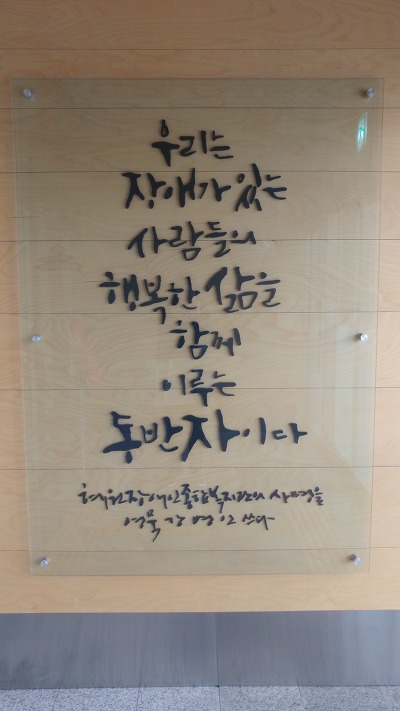 우리는
장애가 있는
사람들의
행복한 삶을
함께
이루는
동반자이다
혜원장애인종합복지관의 사명을
여묵 강병인 쓰다